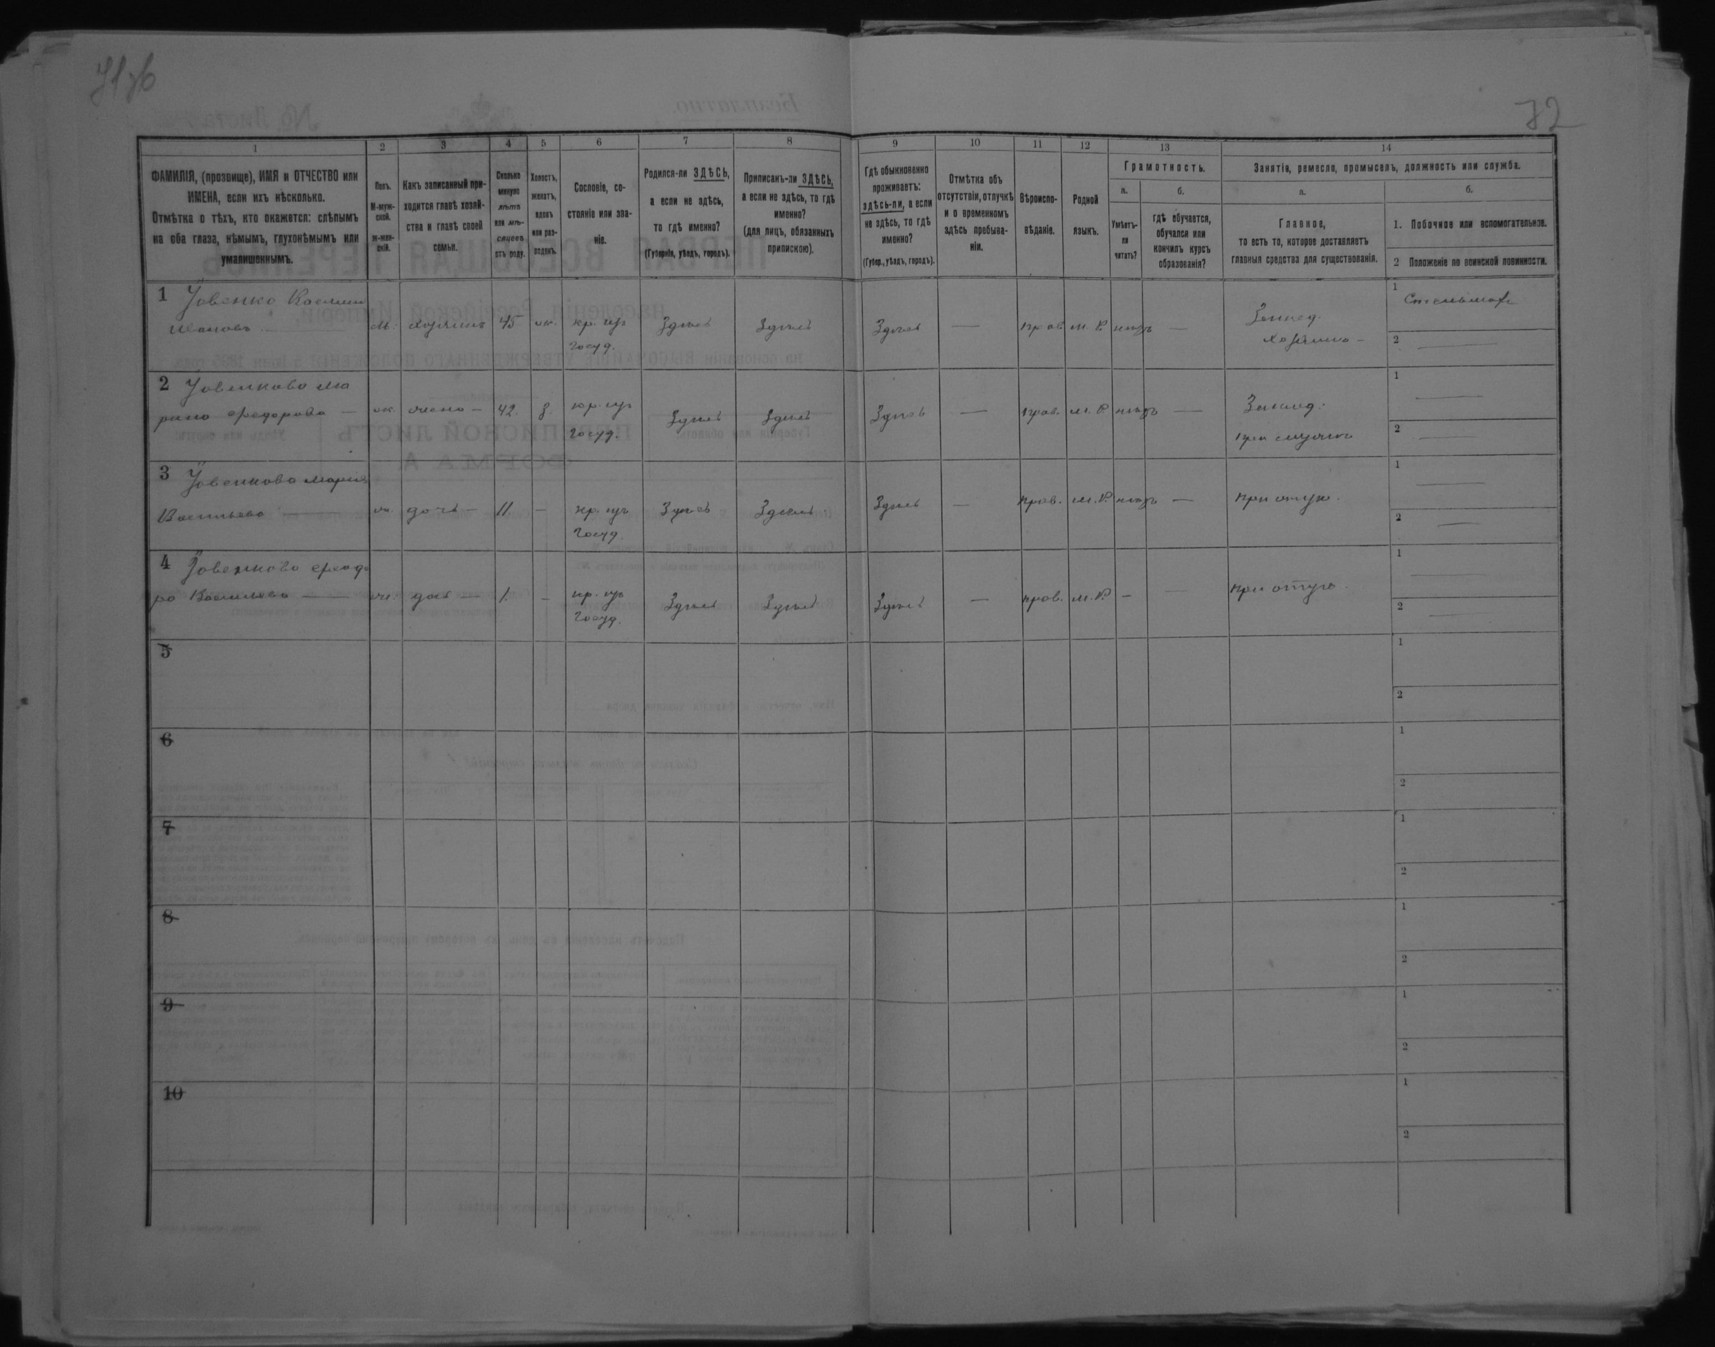 72
1
2
3
4
5
6
7
8
9
10
11
12
13
14
ФАМИЛІЯ, (прозвище), ИМЯ и ОТЧЕСТВО или
ИМЕНА, если ихъ нѣсколько.
Отмѣтка о тѣхъ, кто окажется: слѣпымъ
на оба глаза, нѣмымъ, глухонѣмымъ или
умалишоннымъ.
Полъ.
М-муж-
ской.
Ж-жен-
скій.
Какъ записанный при-
ходится главѣ хозяй-
ства и главѣ своей
семьи.
Сколько
минуло
лѣтъ
или мѣ-
сяцевъ
отъ роду.
Холостъ,
женатъ,
вдовъ
или раз-
веденъ.
Сословіе, со-
стояніе или зва-
ніе.
Родился-ли ЗДѢСЬ,
а если не здѣсь,
то гдѣ именно?
(Губернія, уѣздъ, городъ).
Приписанъ-ли ЗДѢСЬ,
а если не здѣсь, то гдѣ
именно?
(для лицъ, обязанныхъ
припискою).
Гдѣ обыкновенно
проживаетъ:
здѣсь-ли, а если
не здѣсь, то гдѣ
именно?
(Губер., уѣздъ, городъ).
Отмѣтка объ
отсутствіи, отлучкѣ
и о временномъ
здѣсь пребыва-
ніи.
Вѣроиспо-
вѣданіе.
Родной
языкъ.
Грамотность.
а.
Умѣетъ-
ли
читать?
б.
гдѣ обучается,
обучался или
кончилъ курсъ
образованія?
Занятіе, ремесло, промыселъ, должность или служба.
а.
Главное,
то есть то, которое доставляетъ
главныя средства для существованія.
б.
1. Побочное или вспомогательное.
2 Положеніе по воинской повинности.
1 Іовенко Василий
Ивановъ м. хозяинъ 45 ж. кр. изъ госуд. Здѣсь Здѣсь Здѣсь — прав. м. Р. нѣтъ —
2 Іовенкова Ма
рина Федорова — ж. жена — 42 з. кр. изъ госуд. Здѣсь Здѣсь Здѣсь — прав. м. Р. нѣтъ —
3 Іовенкова Марія
Васильева — ж. дочь — 11 — кр. изъ госуд. Здѣсь Здѣсь Здѣсь — прав. м. Р. нѣтъ — при отцѣ.
4 Іовенкова Федо
ра Васильева — ж. доч. — 1 — кр. изъ госуд. Здѣсь Здѣсь Здѣсь — прав. м. Р. — — при отцѣ.
5
6
7
8
9
10